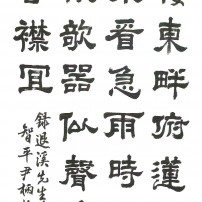 東畔俯蓮
來看急雨時
欹器似聲
襟宜
錄退溪先生
智平尹柄